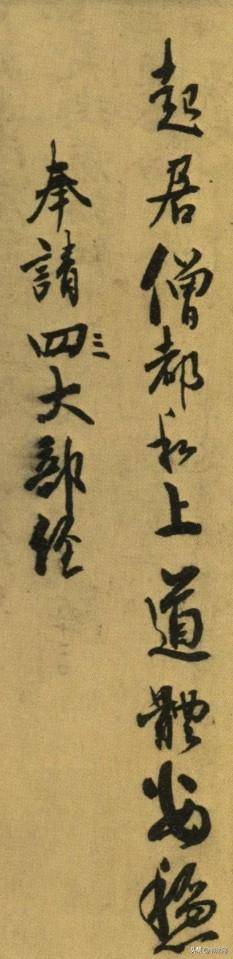 起居僧都和上道體安穩
奉請四三大部経